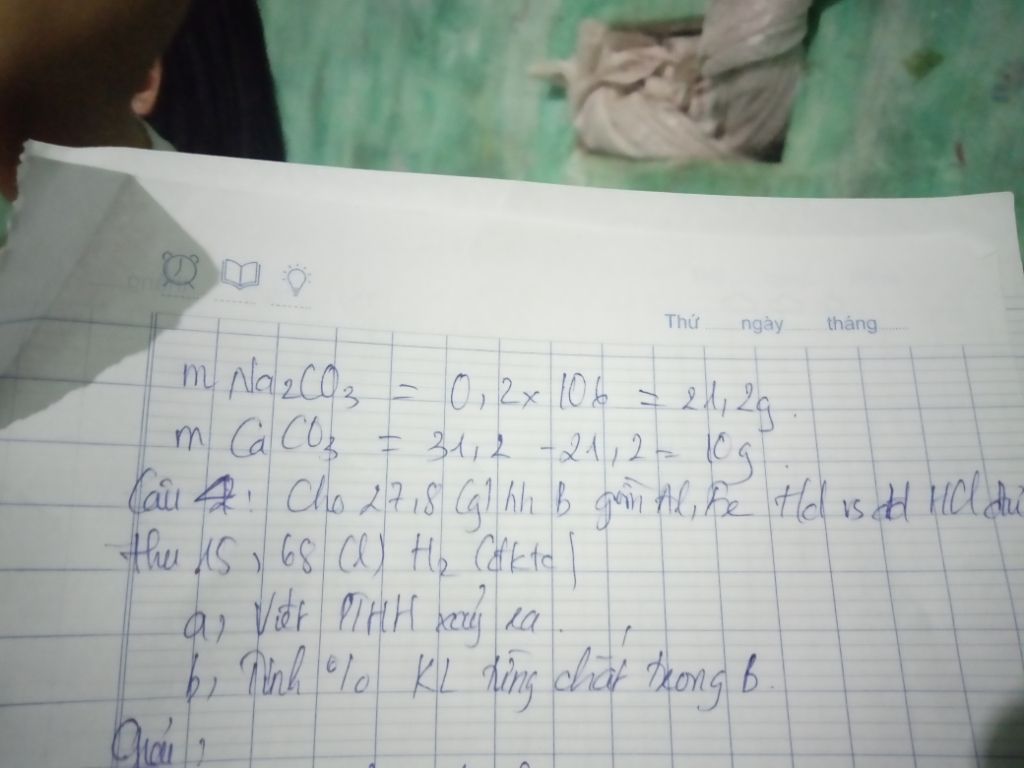 Thứ ngày tháng
m Na2CO3 = 0,2 x 106 = 21,2g.
m CaCO3 = 31,2 - 21,2 = 10g.
Câu 2: Cho 27,8 (g) hh B gồm Al, Fe td vs dd HCl đủ
thu 15,68 (l) H2 (đktc)
a, Viết PTHH xảy ra.
b, Tính % KL từng chất trong B.
Giải: